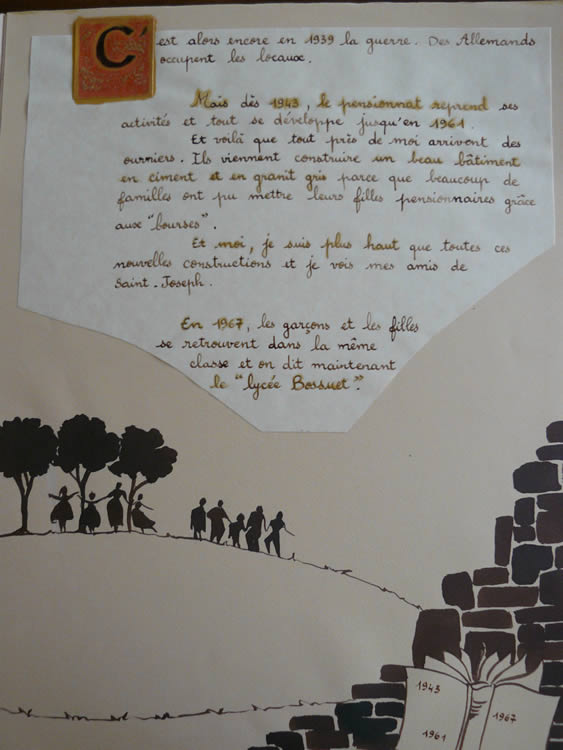 C'est alors encore en 1939 la guerre. Des Allemands
occupent les locaux.
Mais dès 1943, le pensionnat reprend ses
activités et tout se développe jusqu'en 1961.
Et voilà que tout près de moi arrivent des
ouvriers. Ils viennent construire un beau bâtiment
en ciment et en granit gris parce que beaucoup de
familles ont pu mettre leurs filles pensionnaires grâce
aux "bourses".
Et moi, je suis plus haut que toutes ces
nouvelles constructions et je vois mes amis de
Saint-Joseph.
En 1967, les garçons et les filles
se retrouvent dans la même
classe et on dit maintenant
le "lycée Bossuet".
1943
1961
1967